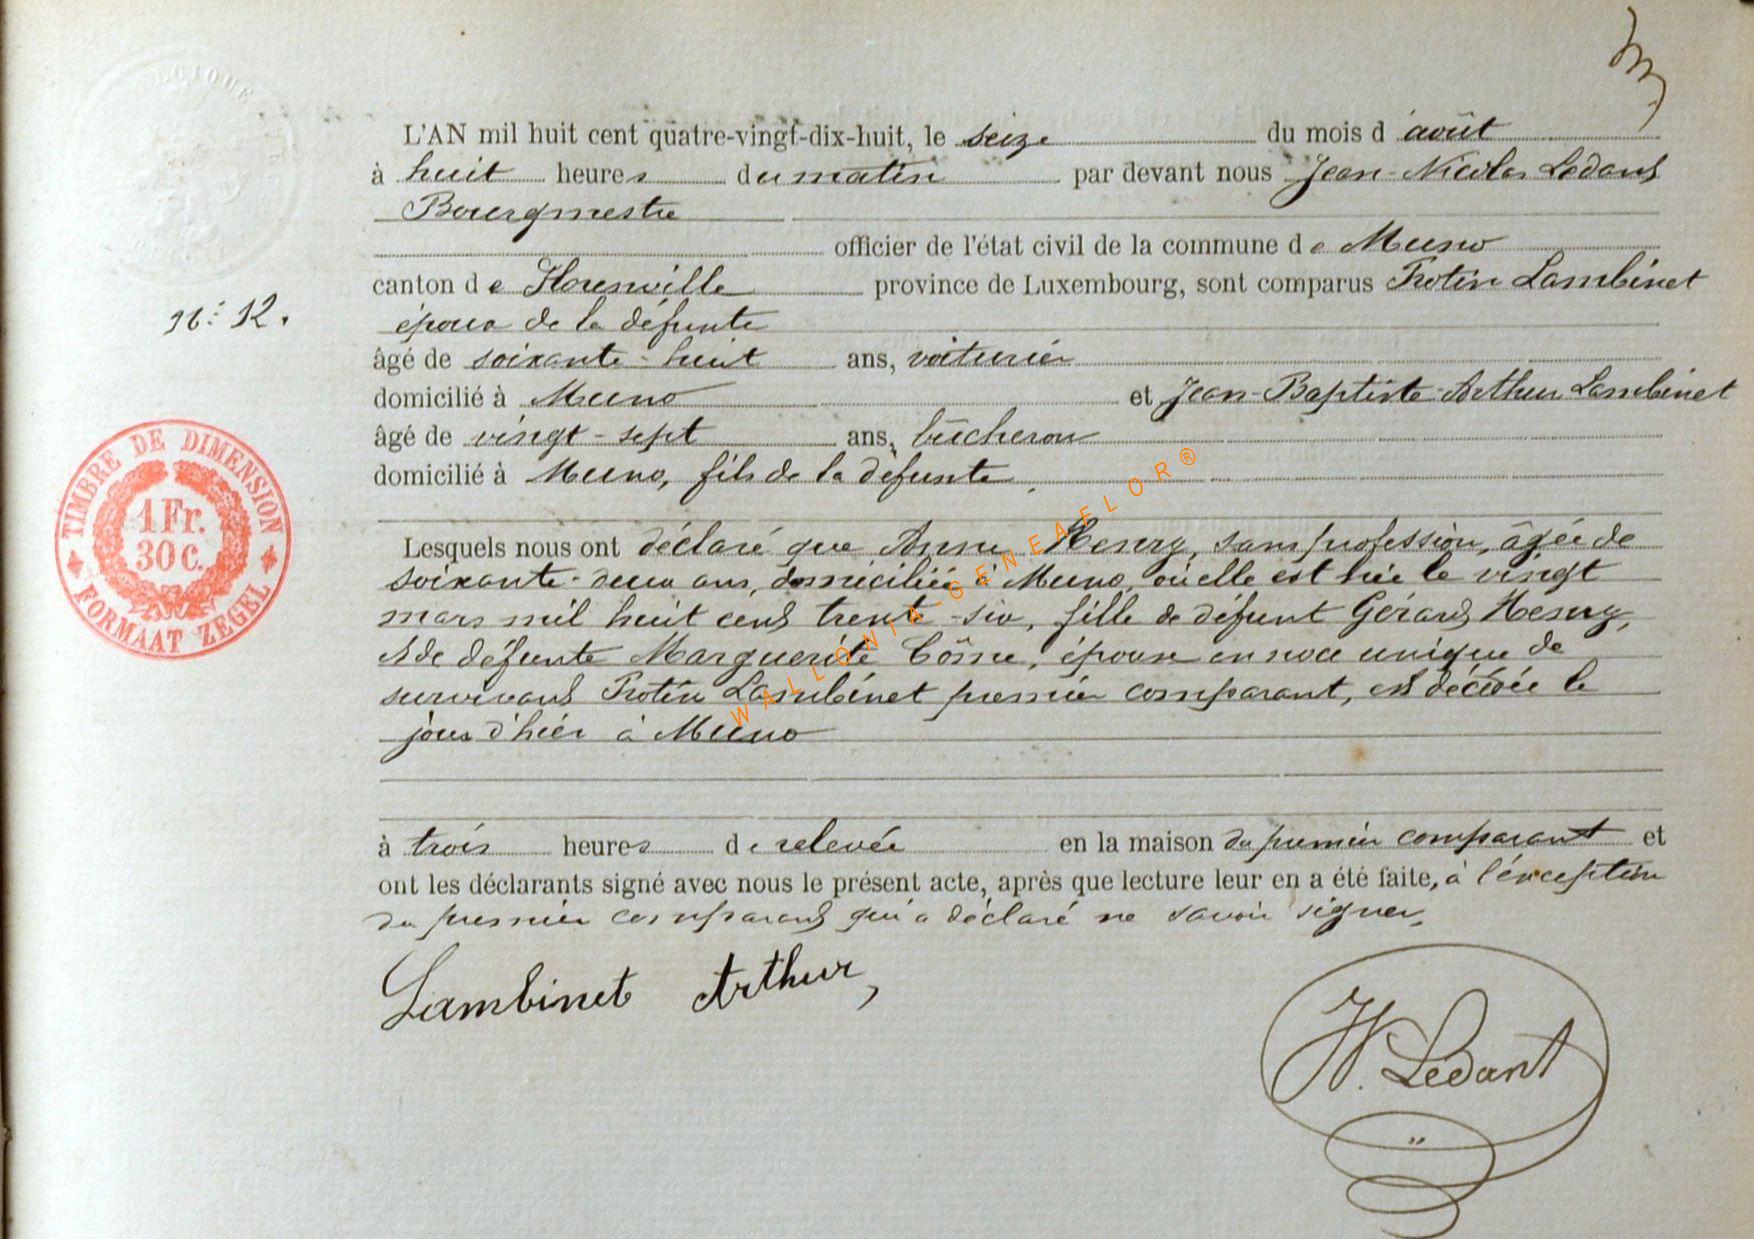 L'AN mil huit cent quatre-vingt-dix-huit, le seize du mois d'août
à huit heures du matin par devant nous Jean-Nicolas Ledant
Bourgmestre
officier de l'état civil de la commune de Muno
canton de Florenville province de Luxembourg, sont comparus Protin Lambinet
N: 12.
époux de la défunte
âgé de soixante-huit ans, voiturier
domicilié à Muno et Jean-Baptiste-Arthur Lambinet
âgé de vingt-sept ans, bûcheron
domicilié à Muno, fils de la défunte
TIMBRE DE DIMENSION
1 Fr.
30 C.
FORMAAT ZEGEL
Lesquels nous ont déclaré que Anne Henry, sans profession, âgée de
soixante-deux ans, domiciliée à Muno, où elle est née le vingt
mars mil huit cent trent-six, fille de défunt Gérard Henry,
et de défunte Marguerite Côme, épouse en noce unique de
survivant Protin Lambinet premier comparant, est décédée le
jour d'hier à Muno
à trois heures de relevée en la maison du premier comparant et
ont les déclarants signé avec nous le présent acte, après que lecture leur en a été faite, à l'exception
du premier comparant qui a déclaré ne savoir signer.
Lambinet Arthur,
N. Ledant
WALLONIA-GENEAFLOR®